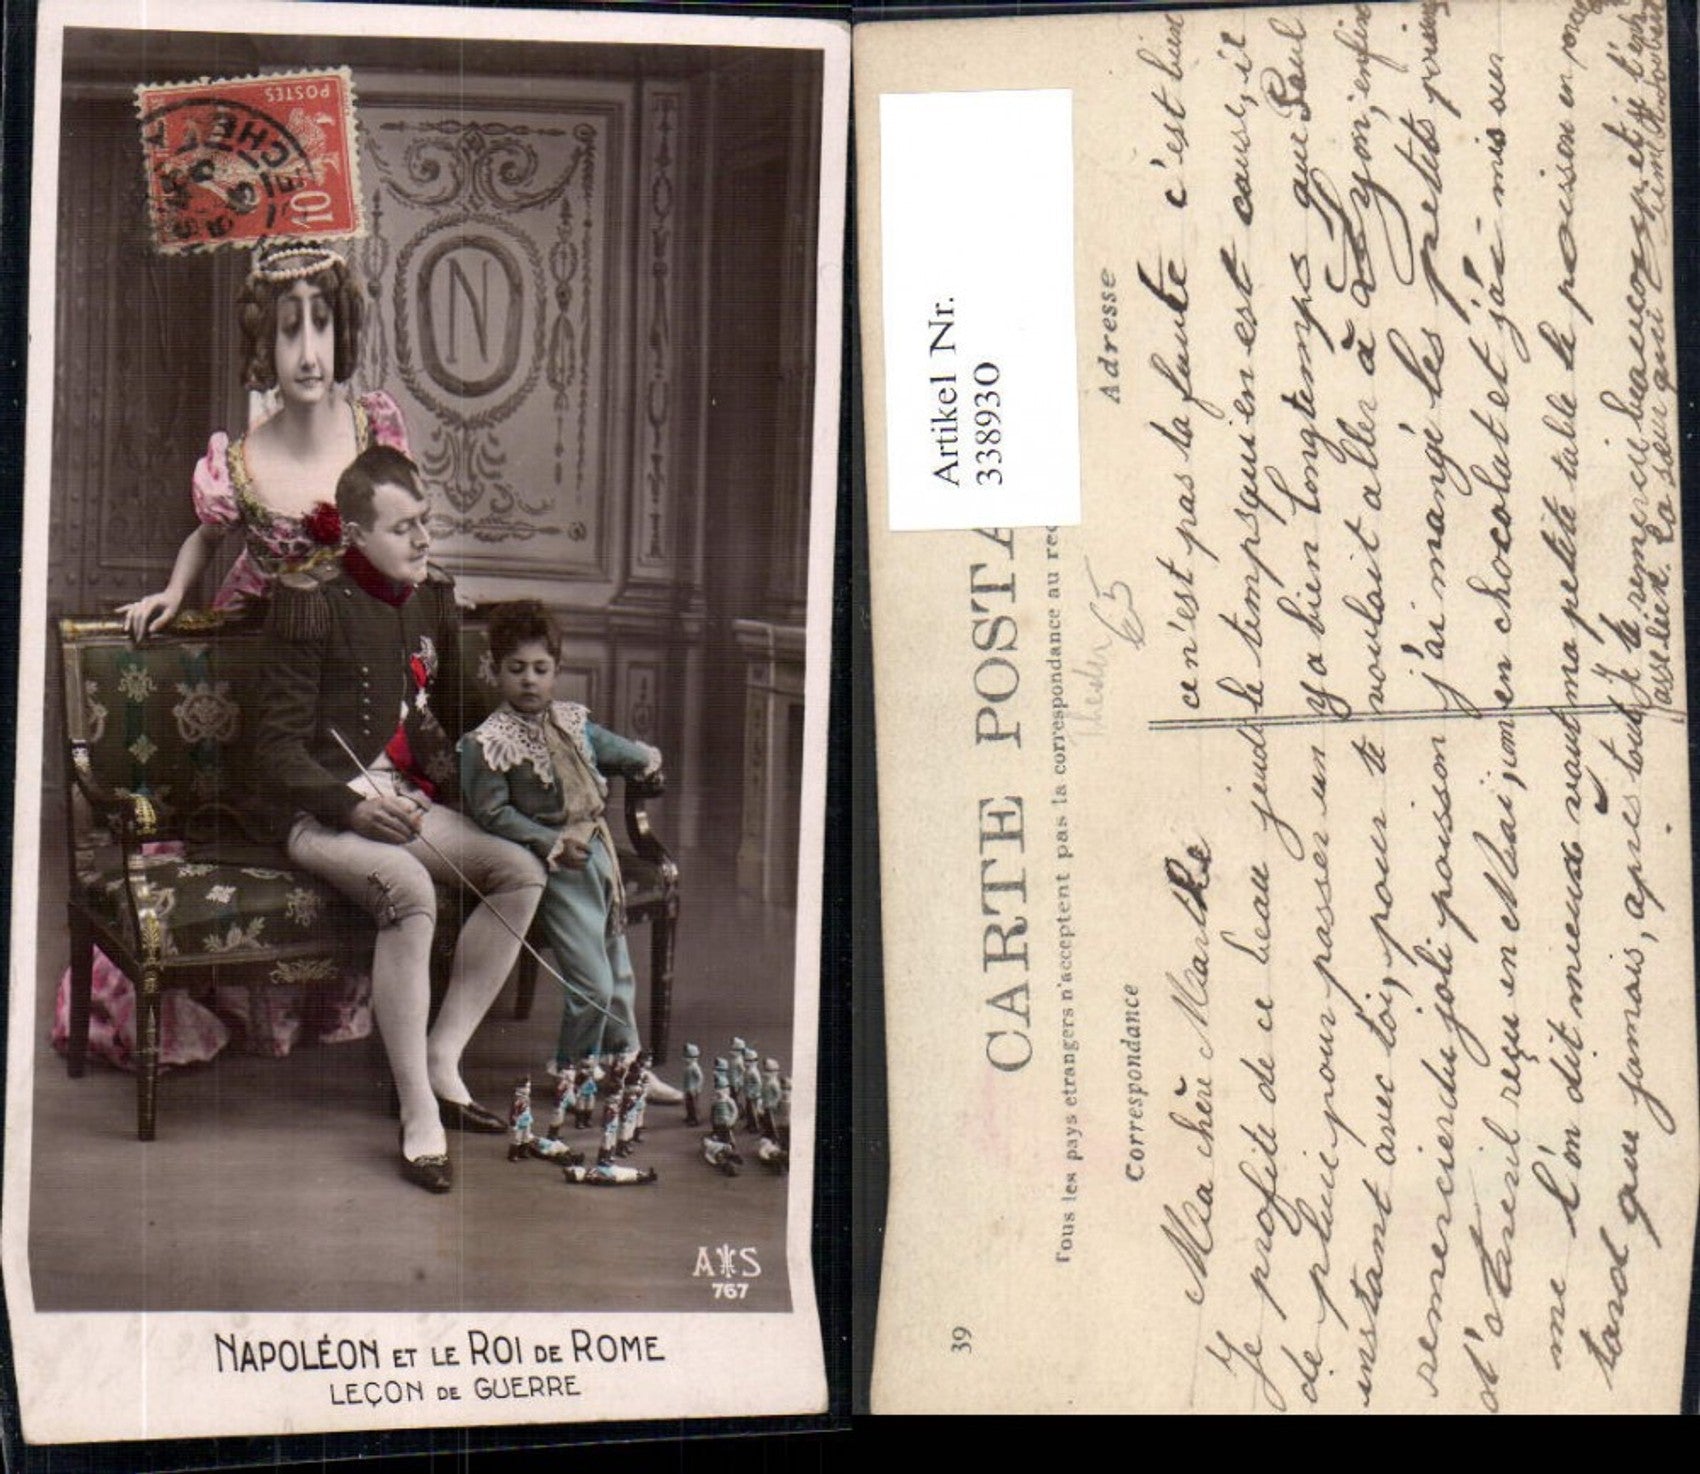 POSTES
10
CHE
N
A S
767
NAPOLÉON ET LE ROI DE ROME
LEÇON DE GUERRE
39
CARTE POSTA
Tous les pays etrangers n'acceptent pas la correspondance au rec
Correspondance
Adresse
Artikel Nr.
338930
65
Ma chère Marthe
Je profite de ce beau jeudi
de pluie pour passer un
instant avec toi, pour te
remercier du joli poisson
d'Avril reçu en Mai, comme
me l'on dit mieux vaut
tard que jamais, après tout
ce n'est pas ta faute c'est bien
le temps qui en est cause, il
y a bien longtemps que Paul
voulait aller à Lyon, enfin
j'ai mangé les petits poissons
en chocolat et j'ai mis sur
ma petite table le poisson en
Je te remercie beaucoup et je
La sœur qui t'aime